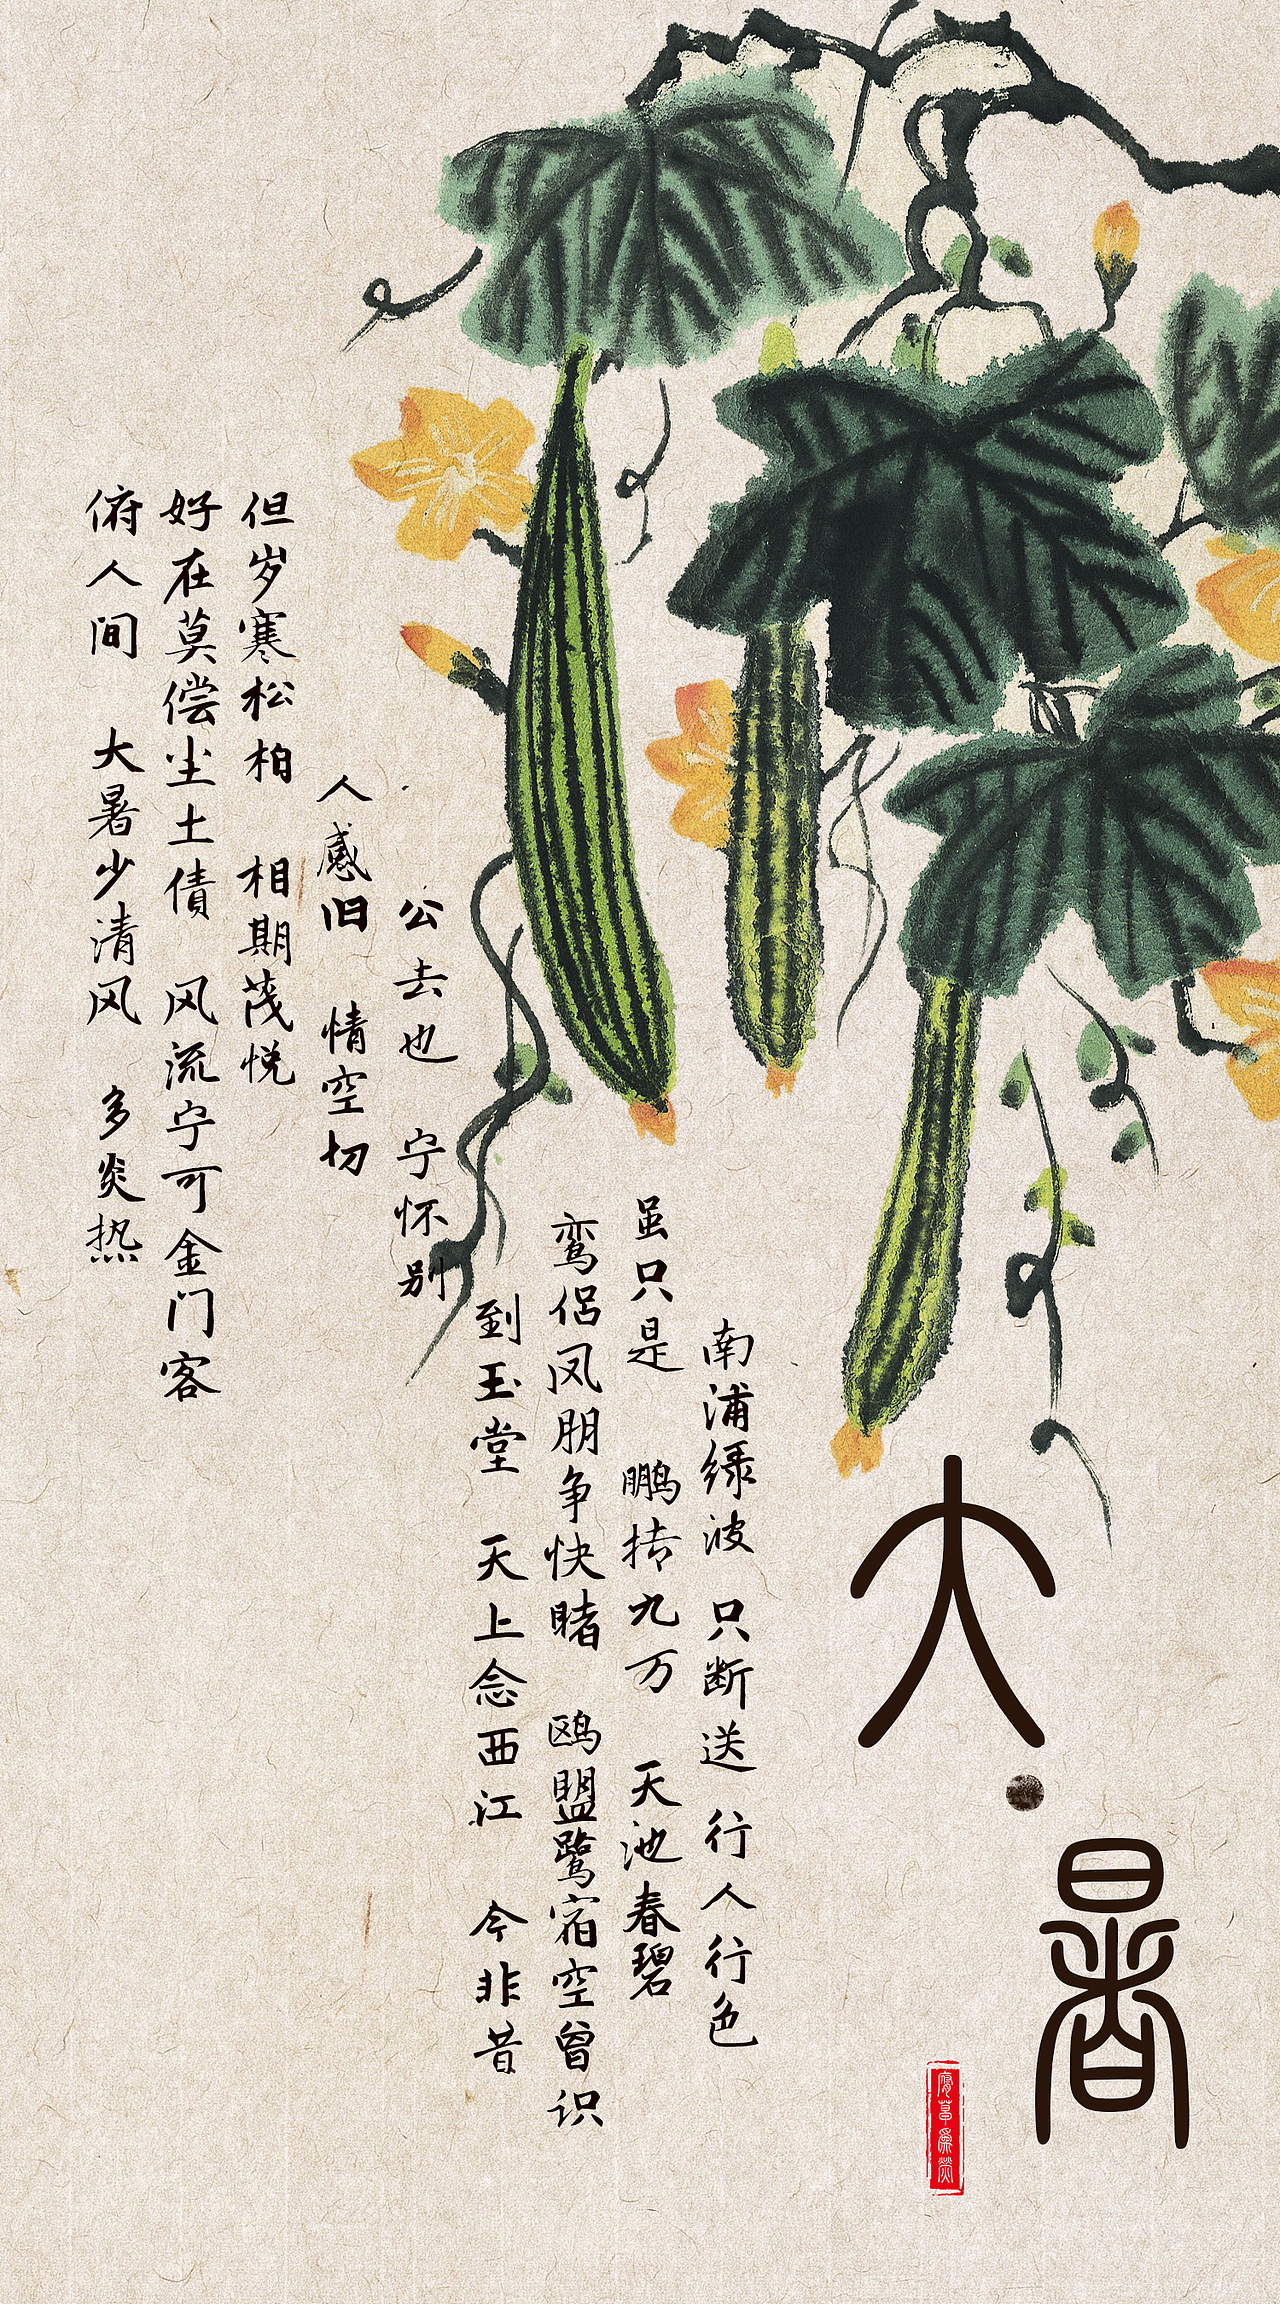 大·暑
腐草为萤
南浦绿波 只断送 行人行色
虽只是 鹏抟九万 天池春碧
鸾侣凤朋争快睹 鸥盟鹭宿空曾识
到玉堂 天上念西江 今非昔
公去也 宁怀别
人感旧 情空切
但岁寒松柏 相期茂悦
好在莫偿尘土债 风流宁可金门客
俯人间 大暑少清风 多炎热